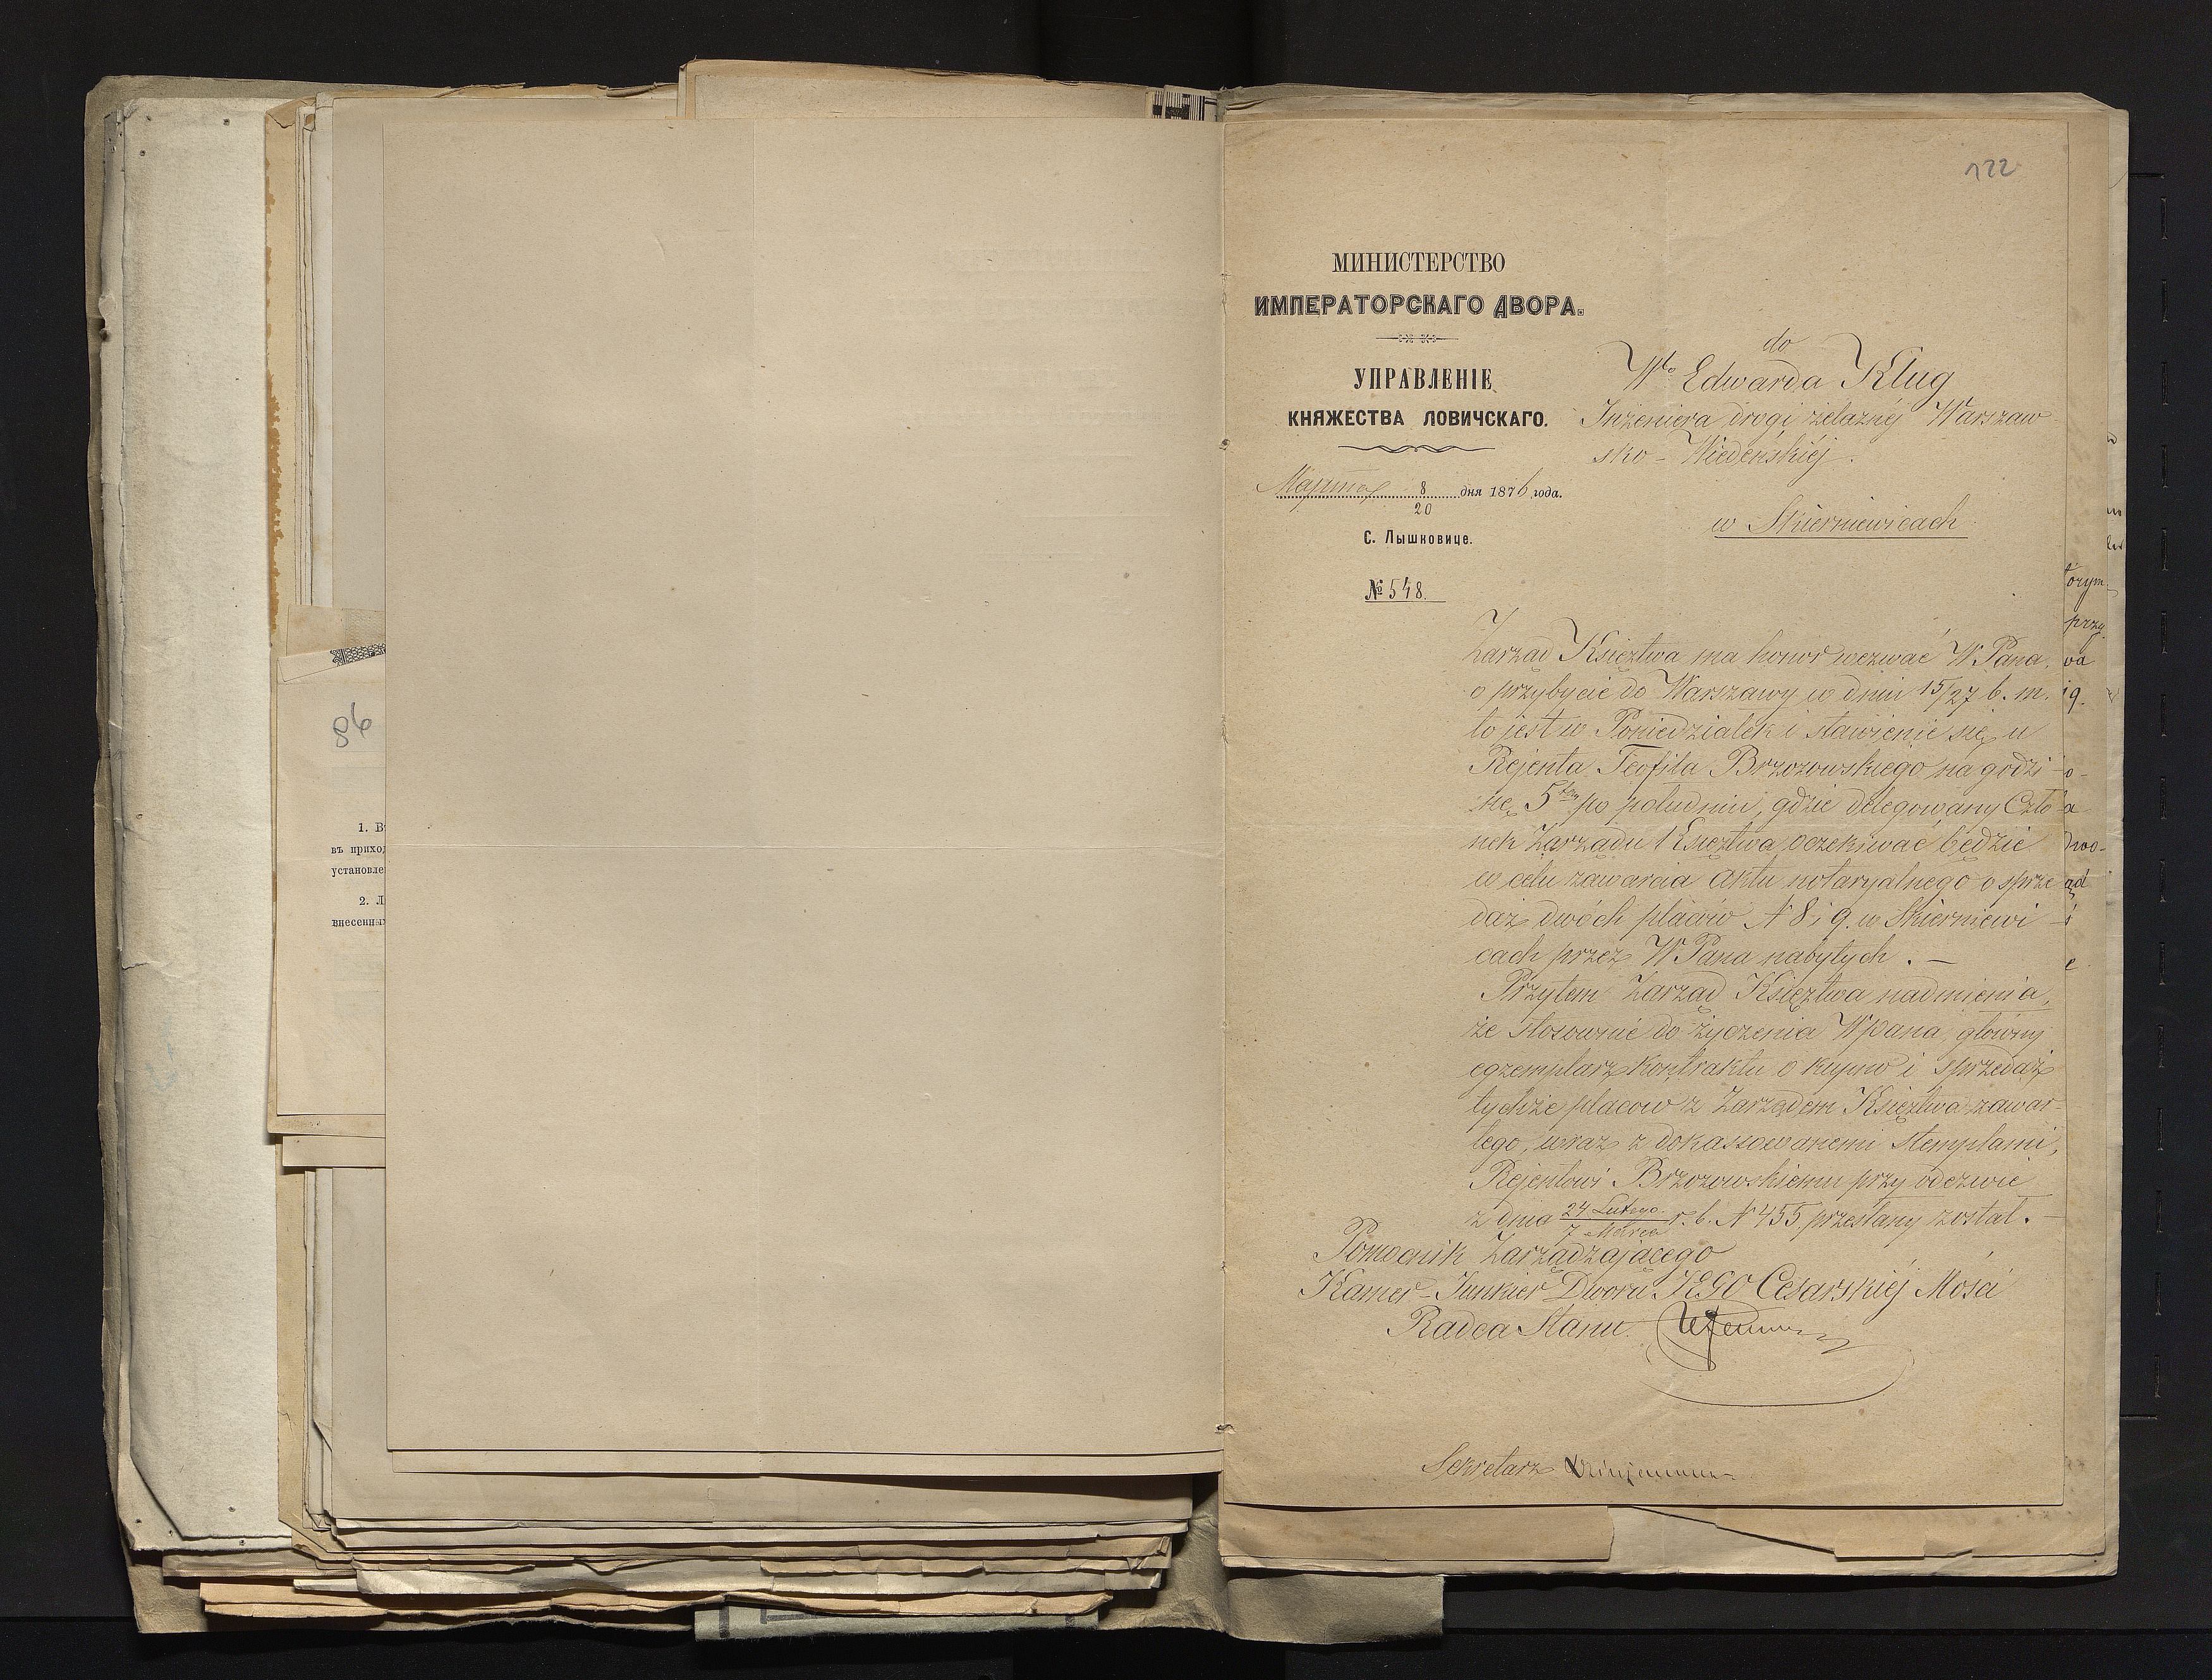 122
МИНИСТЕРСТВО
ИМПЕРАТОРСКАГО ДВОРА.
УПРАВЛЕНІЕ
КНЯЖЕСТВА ЛОВИЧСКАГО.
Марта 8/20 дня 1876 года.
С. Лышковице.
№ 548.
do
Wo Edwarda Klug
Inżeniera drogi żelaznéj Warszaw
sko-Wiedeńskiéj.
w Skierniewicach
Zarząd Księztwa ma honor wezwać WPana,
o przybycie do Warszawy w dniu 15/27 b. m.
to jest w Poniedziałek i stawienie się u
Rejenta Teofila Brzozowskiego na godzi-
nę 5tą po południu, gdzie delegowany Czło-
nek Zarządu Księztwa oczekiwać będzie
w celu zawarcia Aktu notaryalnego o sprze-
daż dwóch placów N 8 i 9. w Skierniewi-
cach przez WPana nabytych. –
Przytem Zarząd Księztwa nadmienia,
że stosownie do życzenia WPana, główny
egzemplarz kontraktu o kupno i sprzedaż
tychże placów z Zarządem Księztwa zawar-
tego, wraz z dokassowanemi stemplami,
Rejentowi Brzozowskiemu przy odezwie
z dnia 24 Lutego/7 Marca r. b. N 455. przesłany został. –
Pomocnik Zarządzającego
Kamer-Junkier Dworu JEGO Cesarskiéj Mości
Radca Stanu
Sekretarz
86
1. В
въ приход
установле
2. Л
внесенных
orym
przy
wa
ig.
o-
a
dwo-
ąd
i
e